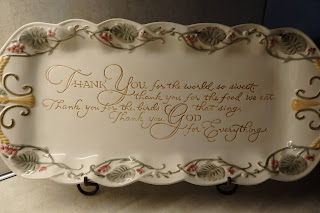 Thank You, for the world so sweet,
thank you for the food we eat
Thank you for the birds that sing,
Thank you, God
for Everything.